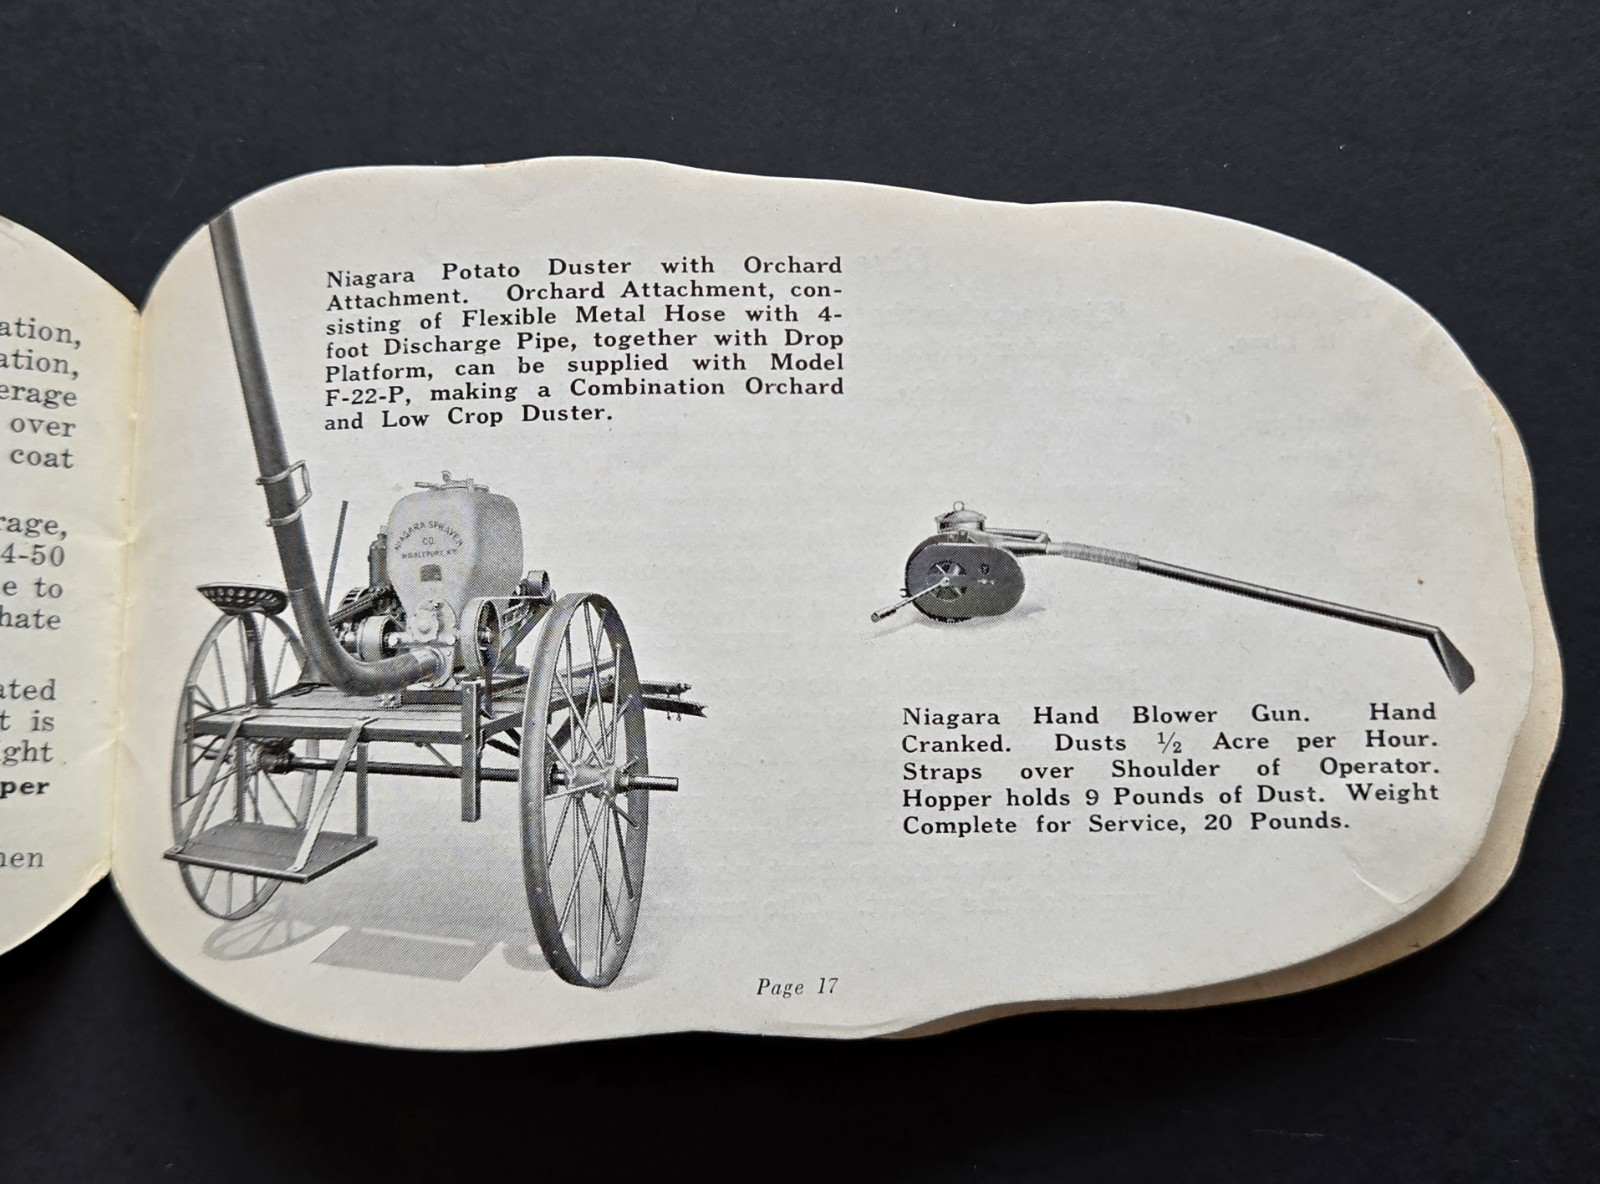 ation,
ation,
erage
over
coat
rage,
4-50
e to
hate
ated
t is
ight
per
hen
Niagara Potato Duster with Orchard
Attachment. Orchard Attachment, con-
sisting of Flexible Metal Hose with 4-
foot Discharge Pipe, together with Drop
Platform, can be supplied with Model
F-22-P, making a Combination Orchard
and Low Crop Duster.
NIAGARA SPRAYER
CO.
MIDDLEPORT, N.Y.
Niagara Hand Blower Gun. Hand
Cranked. Dusts ½ Acre per Hour.
Straps over Shoulder of Operator.
Hopper holds 9 Pounds of Dust. Weight
Complete for Service, 20 Pounds.
Page 17